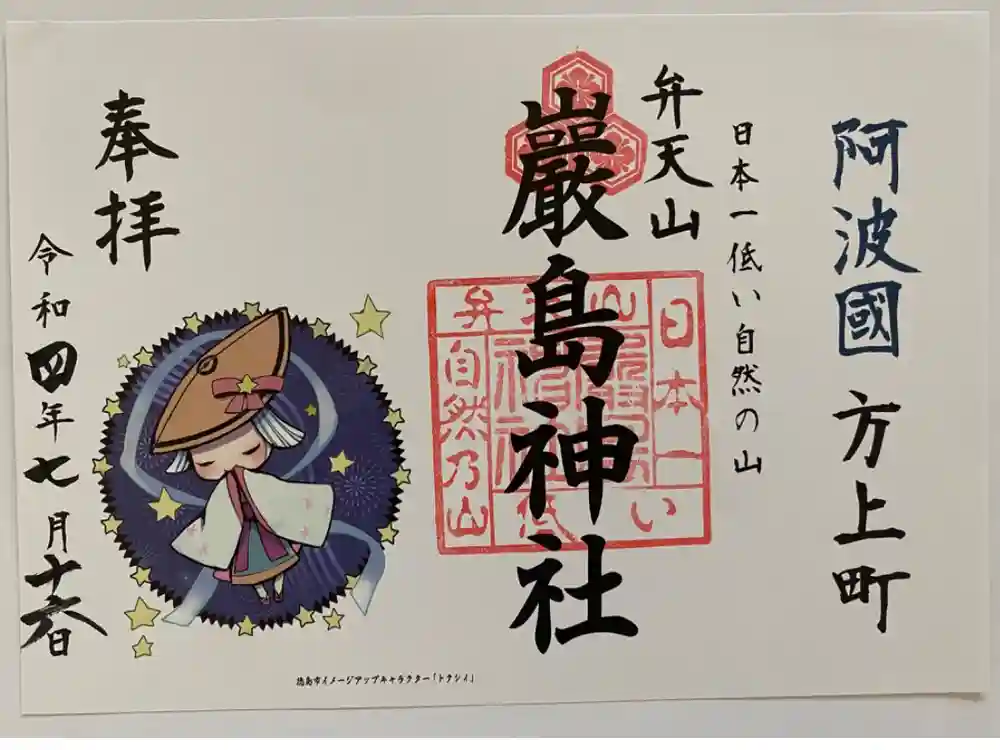 阿波國 方上町
日本一低い自然の山
弁天山
巖島神社
日本一
低い
弁天山
自然乃山
奉拝
令和四年七月十六日
徳島市イメージアップキャラクター「トクシィ」